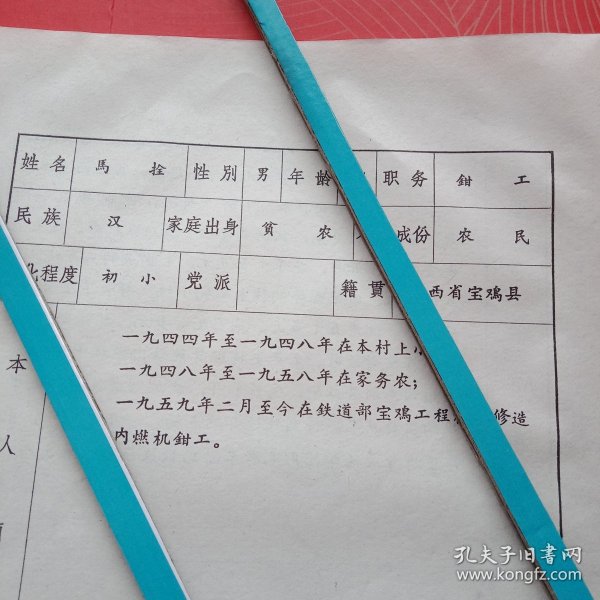 姓名 馬拴 性别 男 年龄 职务 鉗工
民族 汉 家庭出身 貧农 成份 农民
化程度 初小 党派 籍貫 西省宝鳮县
一九四四年至一九四八年在本村上小
一九四八年至一九五八年在家务农；
一九五九年二月至今在鉄道部宝鳮工程 修造
内燃机鉗工。
本
人
孔夫子旧書网
www.kongfz.com